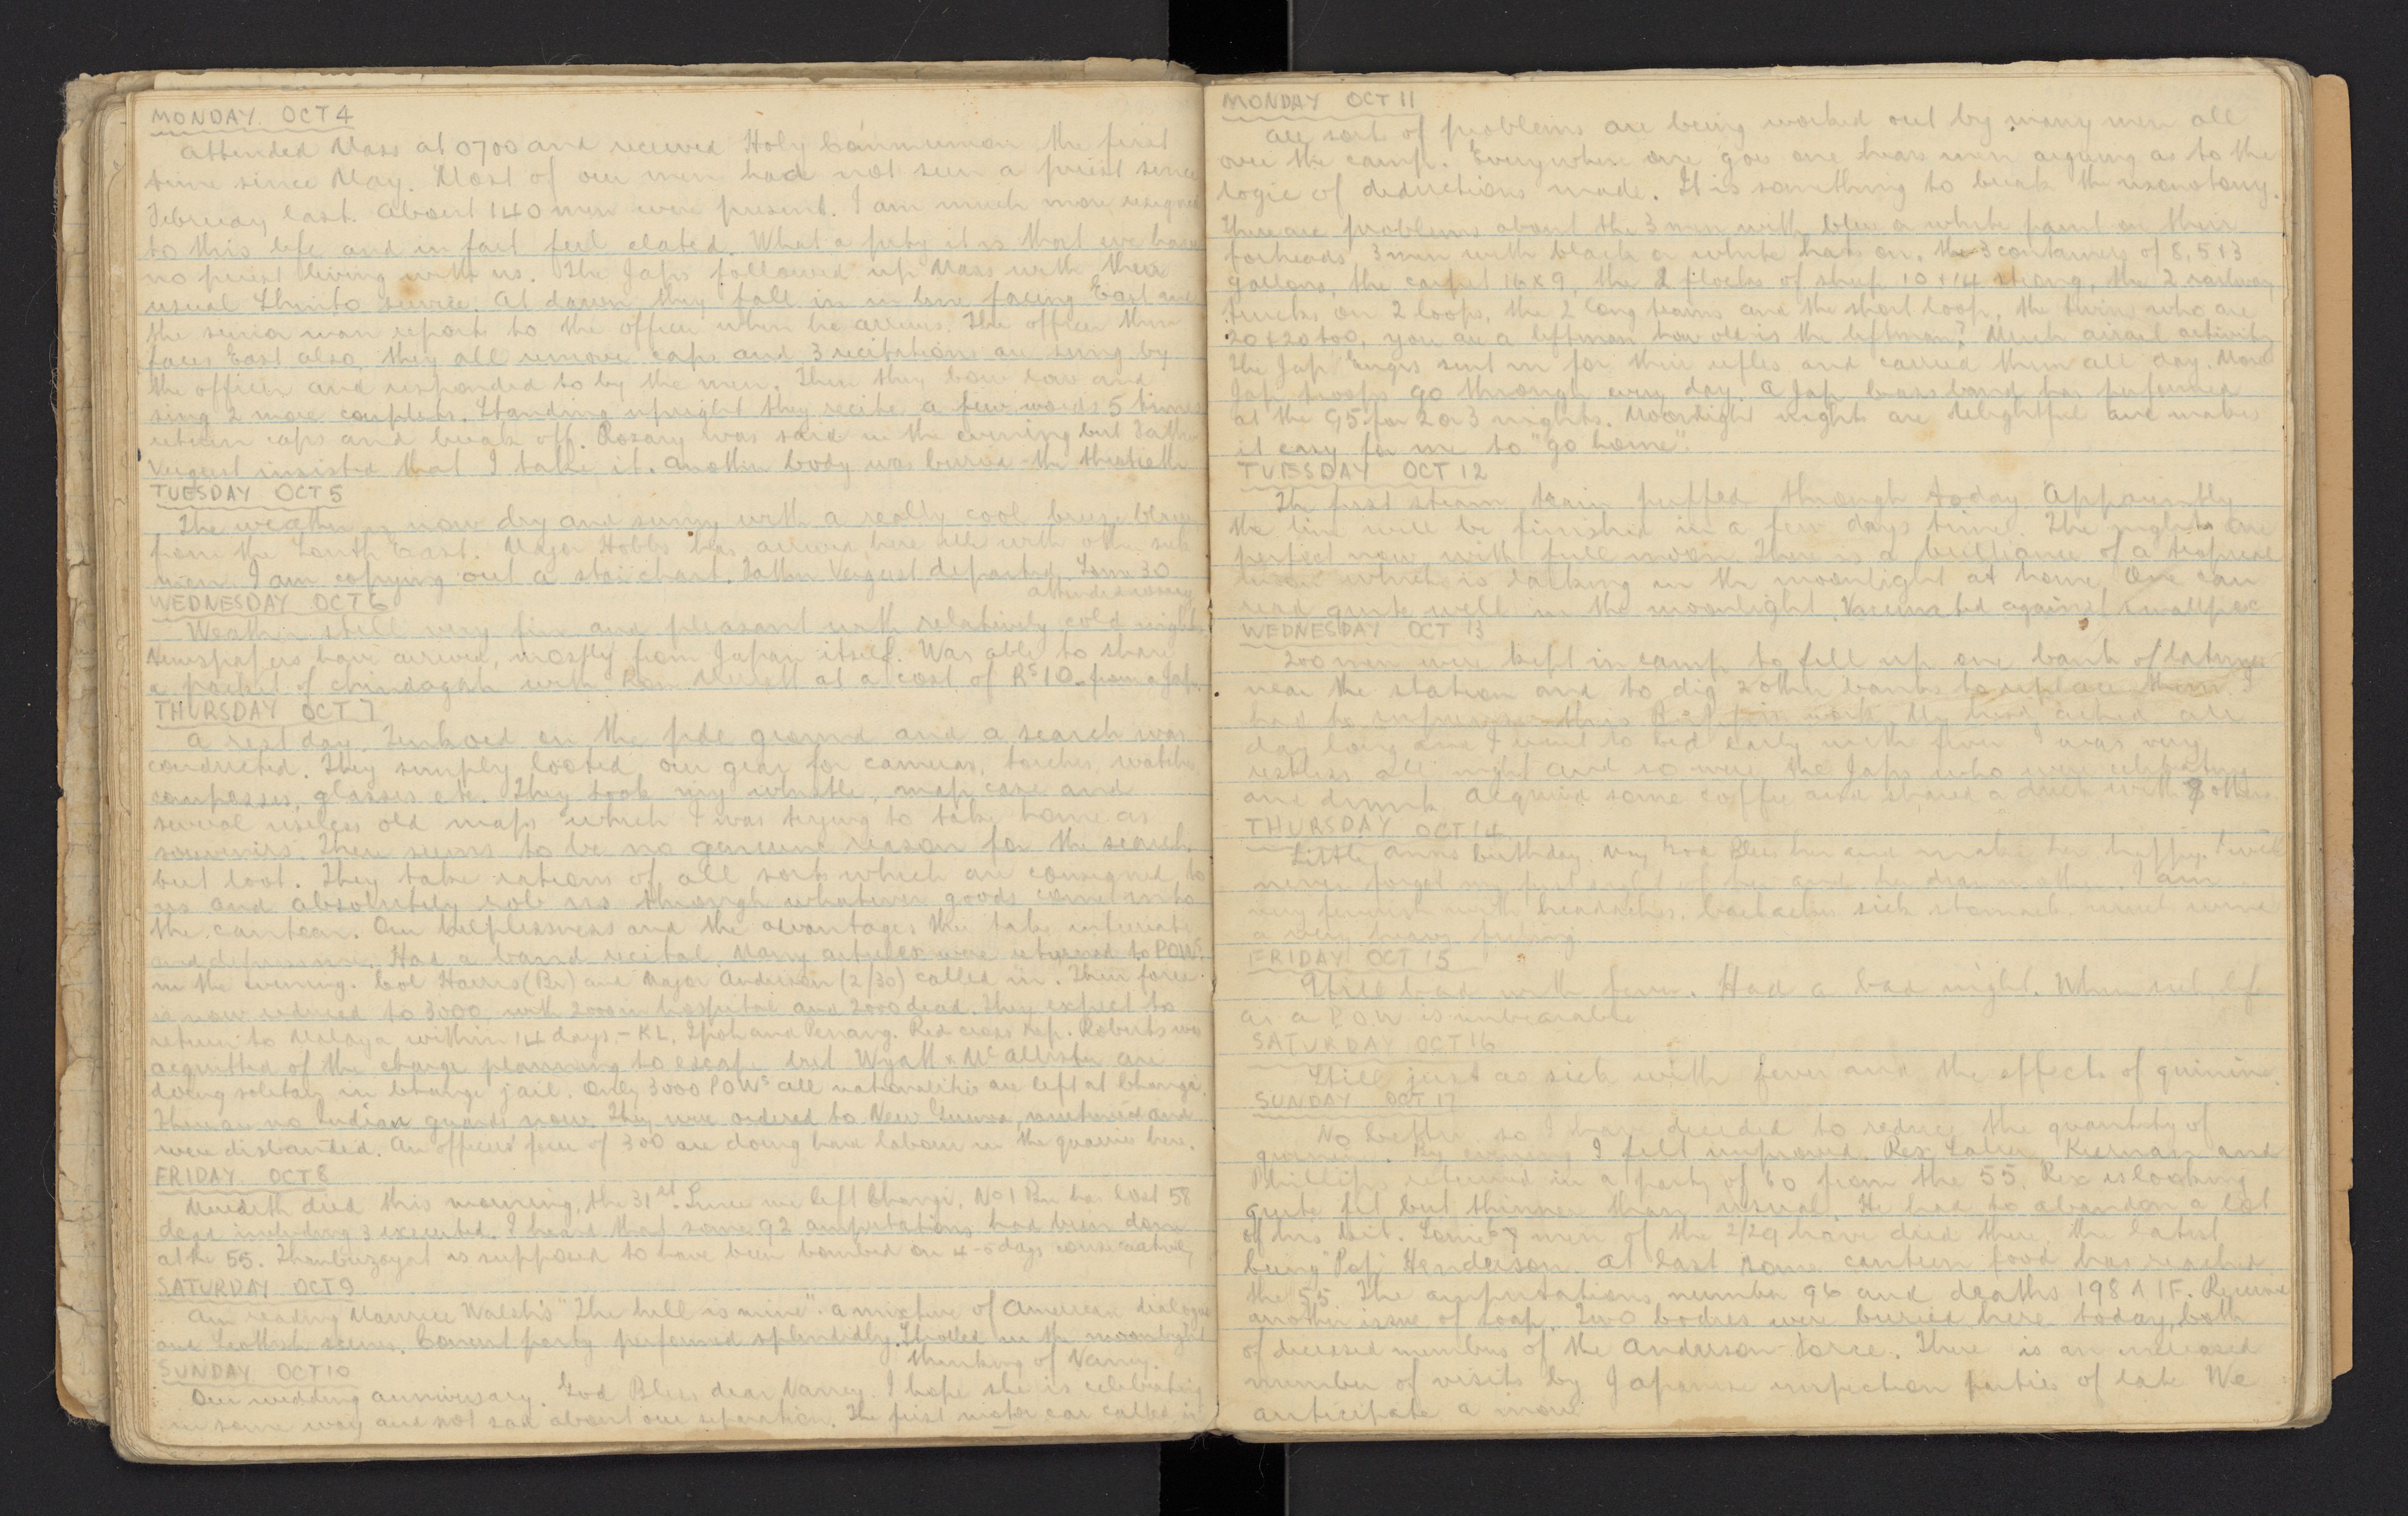 MONDAY OCT 4
Attended Mass at 0700 and received Holy Communion, the first
time since May. Most of our men had not seen a priest since
February last. About 140 men were present. I am much more resigned
to this life and in fact feel elated. What a pity it is that we have
no priest living with us. The Japs followed up Mass with their
usual Shinto service. At dawn they fall in in line facing East and
the senior man reports to the officer when he arrives. The officer then
faces East also, they all remove caps and 3 recitations are sung by
the officer and responded to by the men. Then they bow low and
sing 2 more couplets. Standing upright they recite a few words 5 times
return caps and break off. Rosary was said in the evening but Father
Vergest insisted that I take it. Another body was buried - the thirtieth
TUESDAY OCT 5
The weather is now dry and sunny with a really cool breeze blowing
from the South East. Major Hobbs has arrived here with other sick
men. I am copying out a star chart. Father Vergest departed. Some 30
attended rosary
WEDNESDAY OCT 6
Weather still very fine and pleasant with relatively cold nights.
Newspapers have arrived, mostly from Japan itself. Was able to share
a packet of chindagah with Ron at a cost of Rs 10 from a Jap.
THURSDAY OCT 7
A rest day. on the pde ground and a search was
conducted. They simply looted our gear for cameras, torches, watches,
compasses, glasses etc. They took my whistle, map case and
several useless old maps which I was trying to take home as
souvenirs. There seems to be no genuine reason for the search
but loot. They take rations of all sorts which are consigned to
us and absolutely rob us through whatever goods come into
the canteen. Our helplessness and the advantages they take
and depressive. Had a band recital. Many articles were returned to POWs
in the evening. Col Harris (Br) and Major Anderson (2/30) called in. Their force
is now reduced to 3000, with 2000 in hospital and 2000 dead. They expect to
return to Malaya within 14 days - KL, Ipoh and Penang. Red cross rep. Roberts was
acquitted of the charge planning to escape but Wyatt & McAllister are
doing solitary in Changi jail. Only 3000 POWs all nationalities are left at Changi.
There are no Indian guards now. They were ordered to New Guinea, mutinied and
were disbanded. An officers' force of 300 are doing hard labour in the quarries here.
FRIDAY OCT 8
Meredith died this morning, the 31st. Since we left Changi, No 1 Bn has lost 58
dead including 3 executed. I heard that some 92 amputations had been done
at the 55. Thanbuzayat is supposed to have been bombed on 4-5 days consecutively
SATURDAY OCT 9
Am reading Maurice Walsh's "The hill is mine". A mixture of American dialogue
and Scottish scenes. Concert party performed splendidly. Strolled in the moonlight
thinking of Nancy.
SUNDAY OCT 10
Our wedding anniversary. God Bless dear Nancy. I hope she is celebrating
in some way and not sad about our separation. The first motor car called in
MONDAY OCT 11
All sort of problems are being worked out by many men all
over the camp. Everywhere one goes one hears men arguing as to the
logic of deductions made. It is something to break the monotony.
There are problems about the 3 men with blue or white paint on their
forheads, 3 men with black or white hats on, the 3 containers of 8, 5 & 3
gallons, the carpet 16x9, the 2 flocks of sheep 10 & 14 strong, the 2 railway
trucks on 2 loops, the 2 long trains and the short loop, the twins who are
20 & 20 too, you are a liftman how old is the liftman? Much aircraft activity
The Jap Engrs sent in for their rifles and carried them all day. More
Jap troops go through every day. A Jap brass band has performed
at the 95 for 2 or 3 nights. Moonlight nights are delightful and makes
it easy for me to "go home".
TUESDAY OCT 12
The first steam train puffed through today. Apparently
the line will be finished in a few days time. The nights are
perfect now with full moon. There is a brilliance of a tropical
moon which is lacking in the moonlight at home. One can
read quite well in the moonlight. Vaccinated against smallpox
WEDNESDAY OCT 13
200 men were kept in camp to fill up one bank of latrines
near the station and to dig 2 other banks to replace them. I
had to supervise this work. My head ached all
day long and I went to bed early with fever. I was very
restless all night and so were the Japs who were celebrating
and drunk. Acquired some coffee and shared a drink with 8 others
THURSDAY OCT 14
Little Anns birthday. May God Bless her and make her happy. I will
never forget my first sight of her and her dear mother. I am
very feverish with headaches, backaches, sick stomach, much wind
a very heavy feeling
FRIDAY OCT 15
Still bad with fever. Had a bad night. When sick, life
as a P.O.W is unbearable
SATURDAY OCT 16
Still just as sick with fever and the effects of quinine.
SUNDAY OCT 17
No better so I have decided to reduce the quantity of
quinine. By evening I felt improved. Rex Kiernan and
Phillips returned in a party of 60 from the 55. Rex is looking
quite fit but thinner than usual. He had to abandon a lot
of his kit. Some men of the 2/29 have died there, the latest
being "Pop" Henderson. At last some canteen food has reached
the 55. The amputations number 96 and deaths 198 AIF. Received
another issue of soap. Two bodies were buried here today, both
of deceased members of the Anderson Force. There is an increased
number of visits by Japanese inspection parties of late. We
anticipate a move